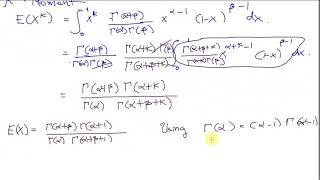 Moment
E(X^k) = ∫_0^1 x^k Γ(α+β)/Γ(α)Γ(β) x^{α-1} (1-x)^{β-1} dx.
= Γ(α+β)/Γ(α)Γ(β) Γ(α+k) Γ(β)/Γ(α+β+k) ∫ Γ(α+β+k)/Γ(α+k)Γ(β) x^{α+k-1} (1-x)^{β-1} dx.
= Γ(α+β) Γ(α+k)/Γ(α) Γ(α+β+k)
E(X) = Γ(α+β) Γ(α+1)/Γ(α) Γ(α+β+1) Using Γ(α) = (α-1) Γ(α-1)